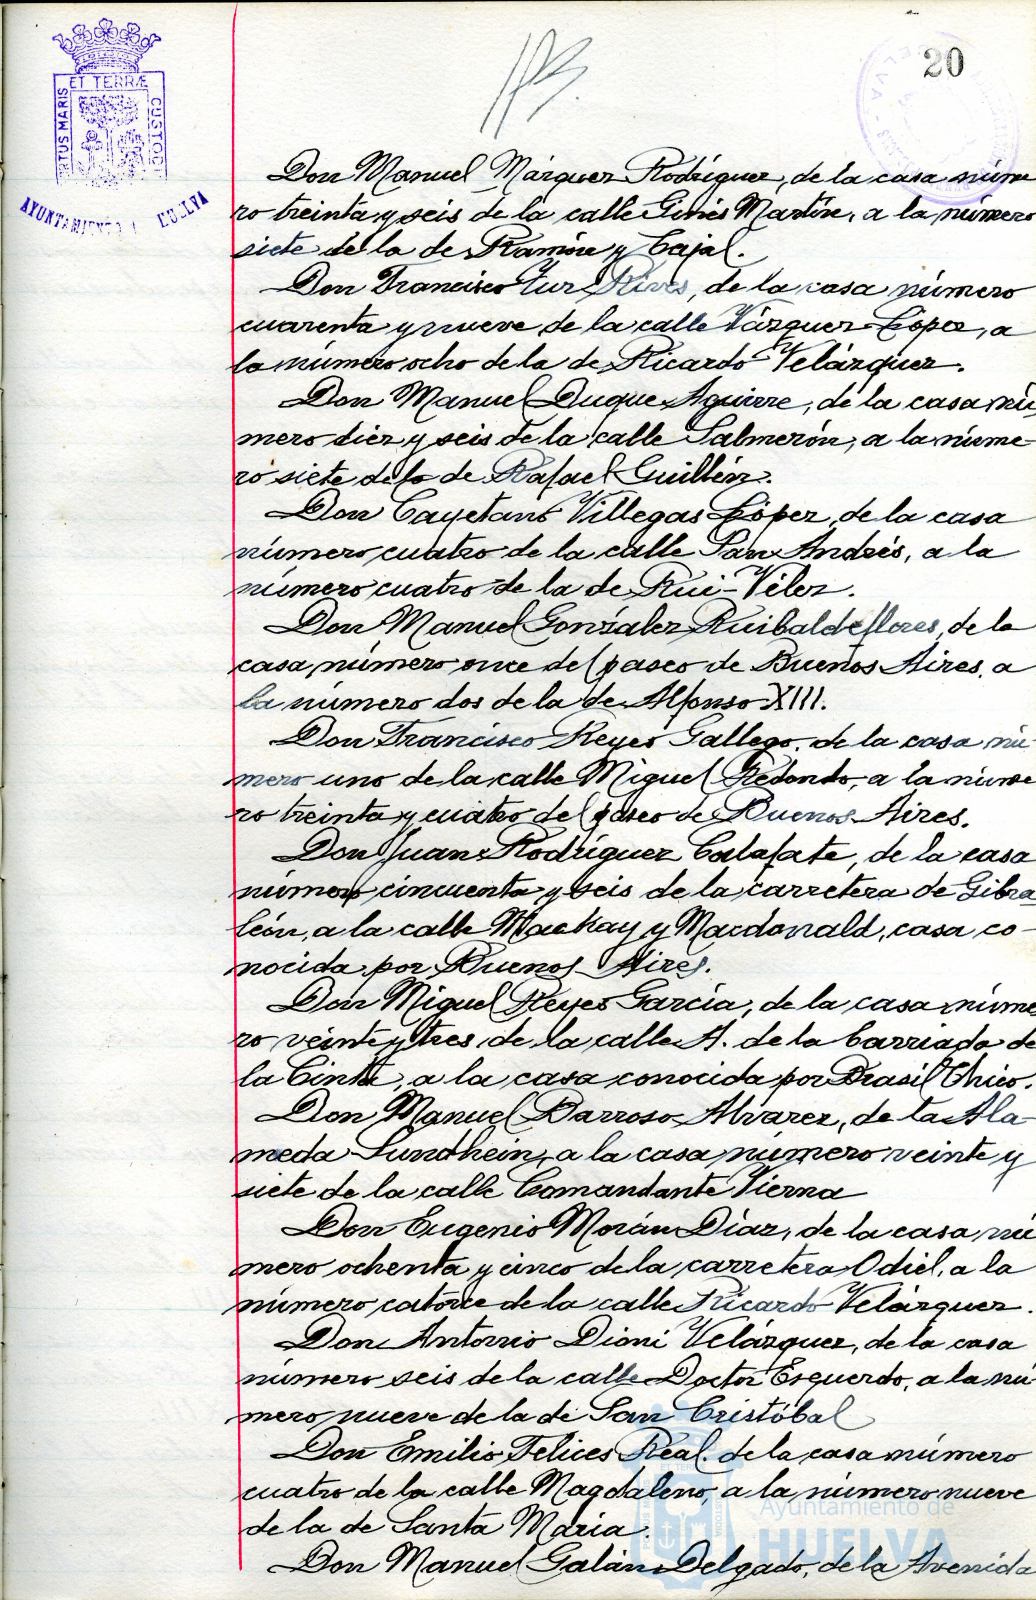 20
ET TERRÆ
CUSTODI
AYUNTAMIENTO HUELVA
Don Manuel Márquez Rodríguez, de la casa núme
ro treinta y seis de la calle Ginés Martín, a la número
siete de la de Ramón y Cajal.
Don Francisco Yur Rives, de la casa número
cuarenta y nueve de la calle Vázquez López, a
la número ocho de la de Ricardo Velázquez.
Don Manuel Duque Aguirre, de la casa nú-
mero diez y seis de la calle Salmerón, a la núme-
ro siete de la de Rafael Guillén.
Don Cayetano Villegas López, de la casa
número cuatro de la calle San Andrés, a la
número cuatro de la de Rui-Vélez.
Don Manuel González Ruibaldeflores, de la
casa número once del paseo de Buenos Aires, a
la número dos de la de Alfonso XIII.
Don Francisco Reyes Gallego, de la casa nú-
mero uno de la calle Miguel Redondo, a la núme
ro treinta y cuatro del paseo de Buenos Aires.
Don Juan Rodríguez Calafate, de la casa
número cincuenta y seis de la carretera de Gibra-
león, a la calle Mackay y Macdonald, casa co-
nocida por Buenos Aires.
Don Miguel Reyes García, de la casa núme
ro veinte y tres de la calle A. de la barriada de
la Cinta, a la casa conocida por Brasil Chico.
Don Manuel Barroso Alvarez, de la Ala-
meda Sundhein, a la casa número veinte y
siete de la calle Comandante Vierna
Don Eugenio Morán Díaz, de la casa nú
mero ochenta y cinco de la carretera Odiel, a la
número catorce de la calle Ricardo Velázquez.
Don Antonio Dioni Velázquez, de la casa
número seis de la calle Doctor Esquerdo, a la nú-
mero nueve de la de San Cristóbal
Don Emilio Felices Real, de la casa número
cuatro de la calle Magdalena, a la número nueve
de la de Santa María.
Ayuntamiento de
HUELVA
Don Manuel Galán Delgado, de la Avenida